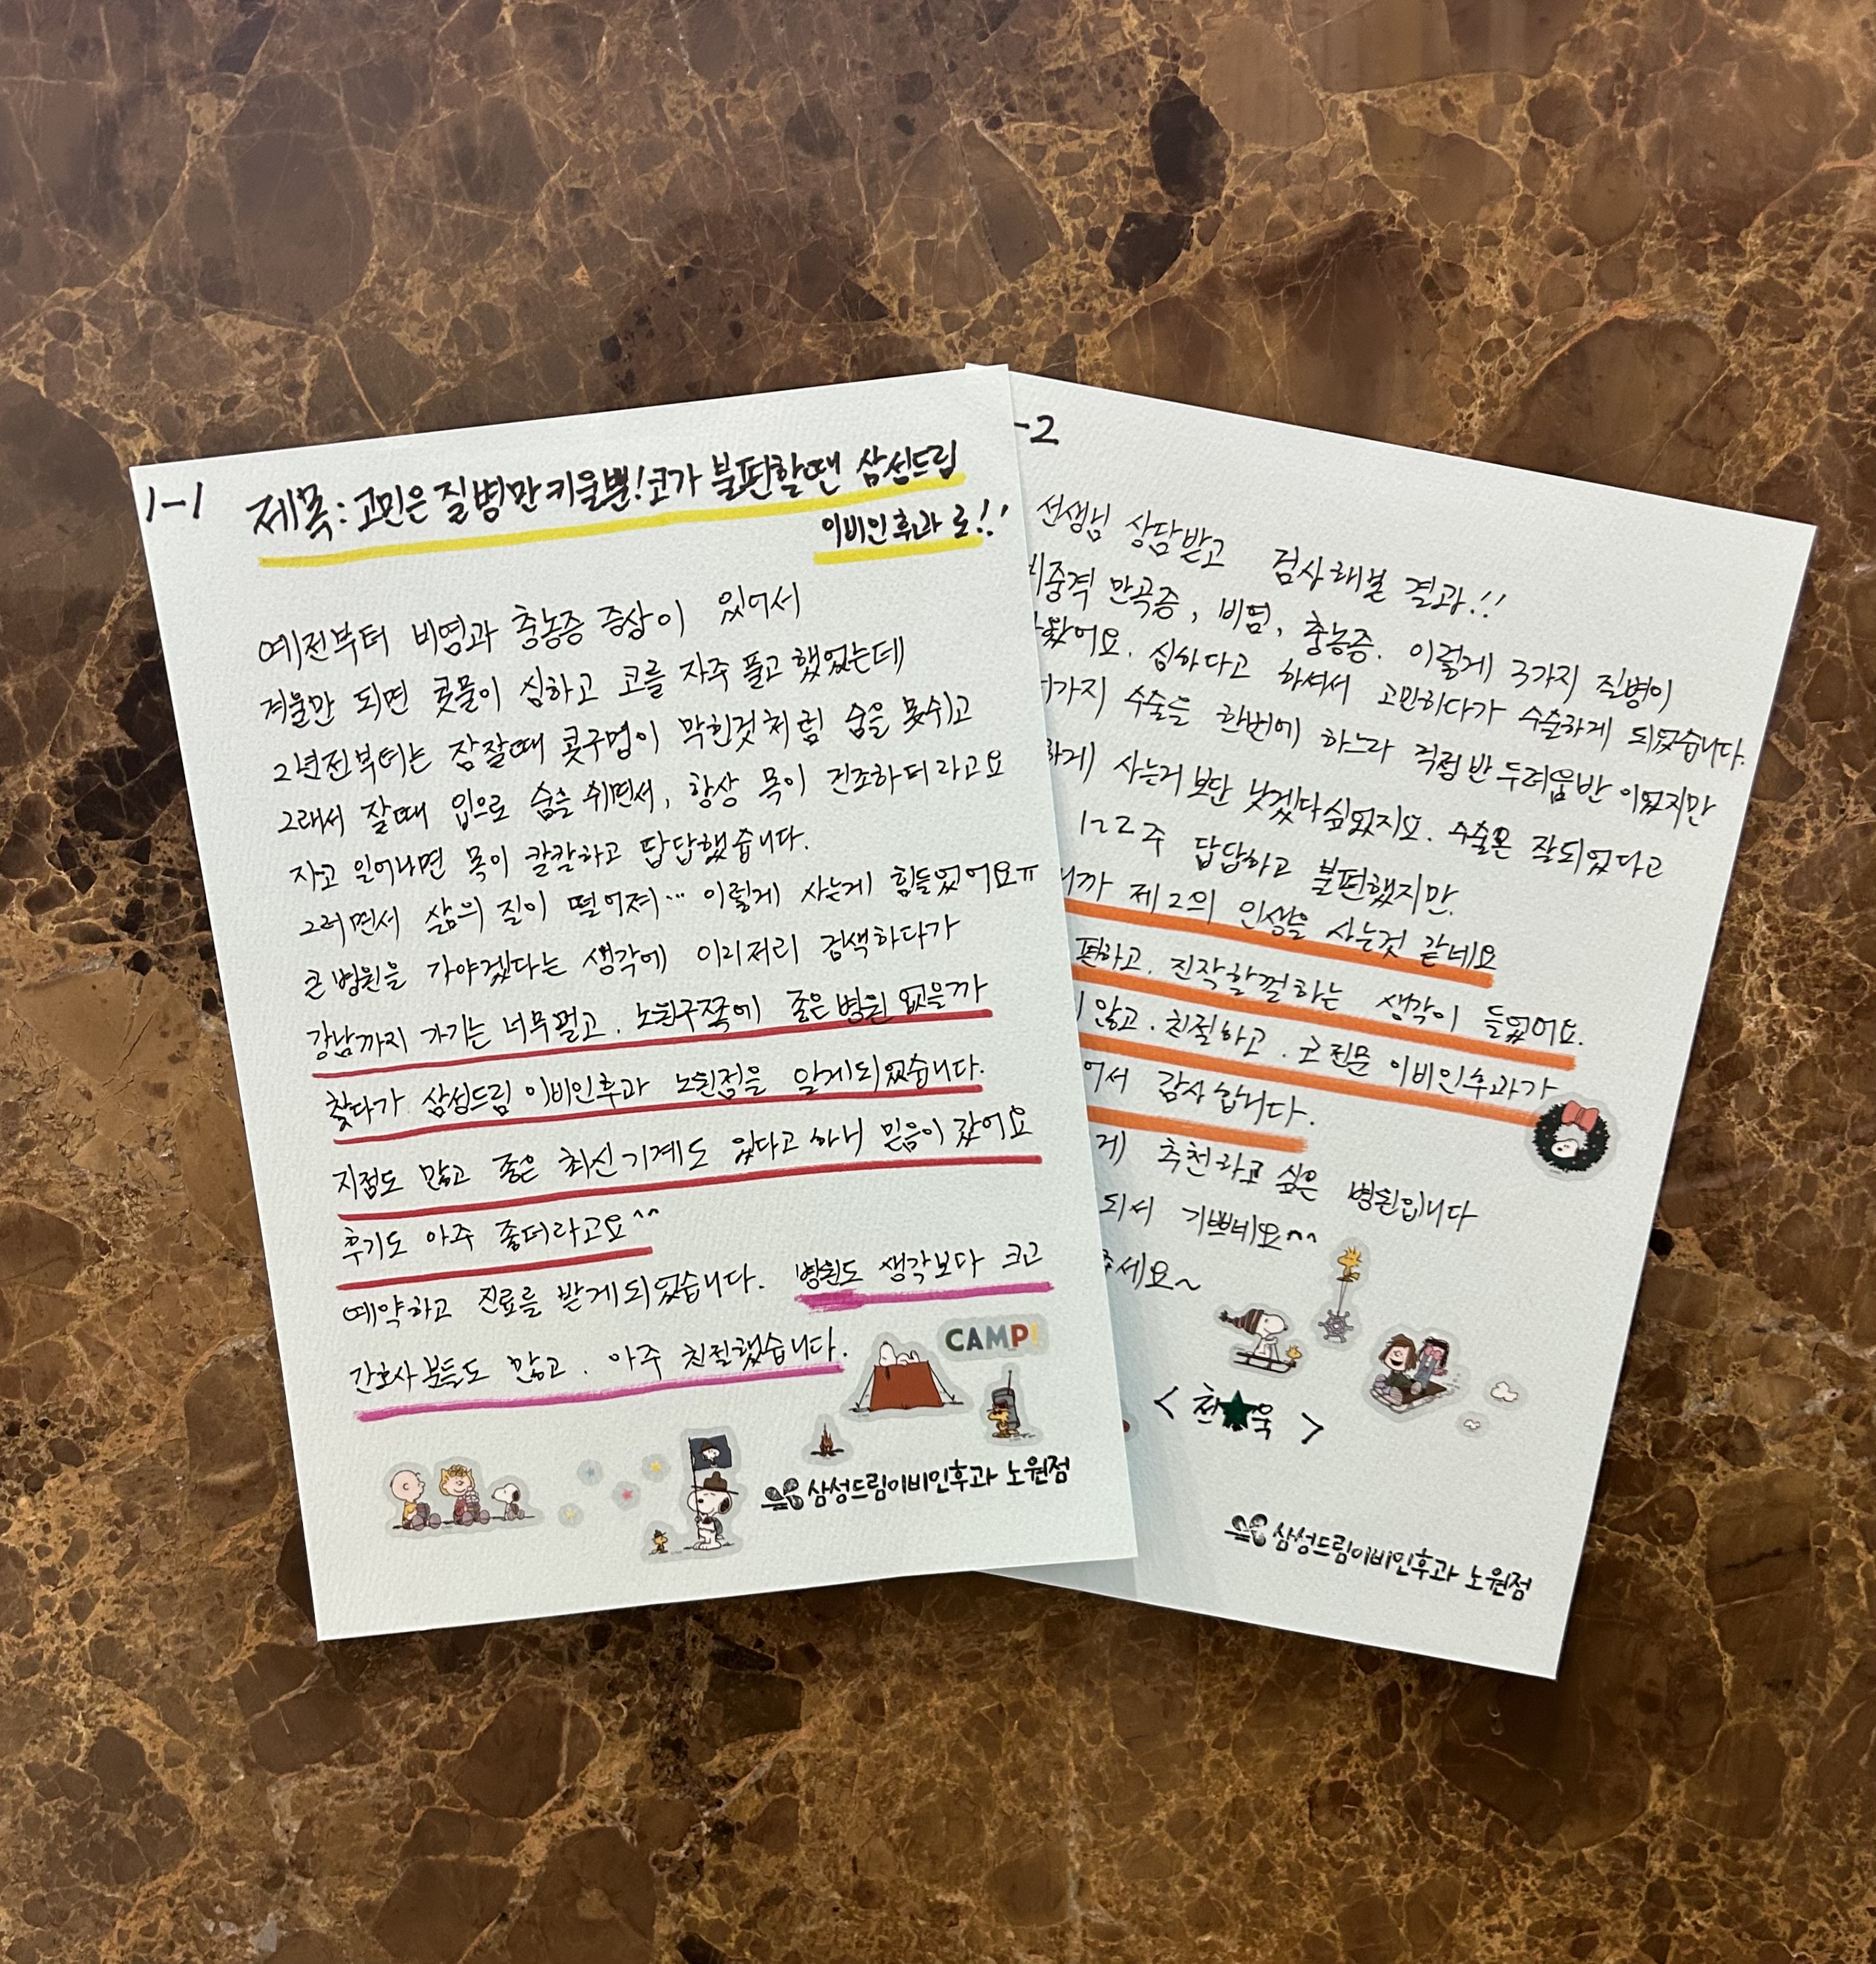 1-1
제목: 고민은 질병만키울뿐! 코가 불편할땐 삼성드림
이비인후과 로!!
예전부터 비염과 충농증 증상이 있어서
겨울만 되면 콧물이 심하고 코를 자주 풀고 했었는데
2년전부터는 잠잘때 콧구멍이 막힌것처럼 숨을 못쉬고
그래서 잘때 입으로 숨을 쉬면서, 항상 목이 건조하더라고요
자고 일어나면 목이 칼칼하고 답답했습니다.
그러면서 삶의 질이 떨어져... 이렇게 사는게 힘들었어요ㅠ
큰병원을 가야겠다는 생각에 이리저리 검색하다가
강남까지 가기는 너무멀고. 노원구쪽에 좋은병원 없을까
찾다가 삼성드림이비인후과 노원점을 알게되었습니다.
지점도 많고 좋은 최신기계도 있다고 하니 믿음이 갔어요
후기도 아주 좋더라고요^^
예약하고 진료를 받게되었습니다. 병원도 생각보다 크고
간호사분들도 많고. 아주 친절했습니다.
CAMP!
삼성드림이비인후과 노원점
-2
선생님 상담받고 검사해본 결과!!
비중격 만곡증, 비염, 충농증. 이렇게 3가지 질병이
왔어요. 심하다고 하셔서 고민하다가 수술하게 되었습니다.
가지 수술을 한번에 하느라 걱정반 두려움반 이었지만
하게 사는거보단 낫겠다싶었지요. 수술은 잘되었다고
1~2주 답답하고 불편했지만.
니까 제2의 인생을 사는것 같네요
편하고. 진작할껄하는 생각이 들었어요.
않고. 친절하고. 코전문 이비인후과가
어서 감사합니다.
게 추천하고 싶은 병원입니다
되서 기쁘네요^^
주세요~
<천★욱>
삼성드림이비인후과 노원점